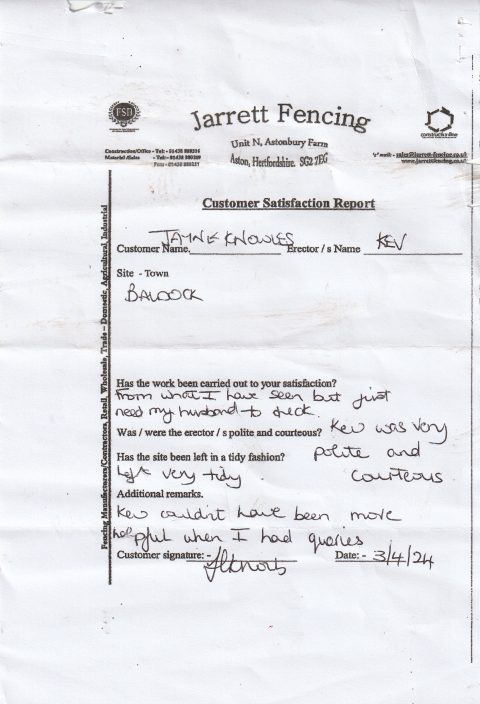 FSB
Jarrett Fencing
constructionline
Unit N, Astonbury Farm
Aston, Hertfordshire. SG2 7EG
Construction/Office - Tel:-
Material /Sales - Tel:-
Fax:-
'e' mail: - sales@jarrett-fencing.co.uk
www.jarrettfencing.co.uk
Customer Satisfaction Report
Customer Name. JAYNE KNOWLES Erector / s Name KEV
Site - Town
BALDOCK
Has the work been carried out to your satisfaction?
From what I have seen but just
need my husband to check.
Was / were the erector / s polite and courteous? Kev was very
polite and
courteous
Has the site been left in a tidy fashion?
Left very tidy
Additional remarks.
Kev couldn't have been more
helpful when I had queries
Customer signature: - Date: - 3/4/24
Fencing Manufacturers/Contractors, Retail, Wholesale, Trade – Domestic, Agricultural, Industrial